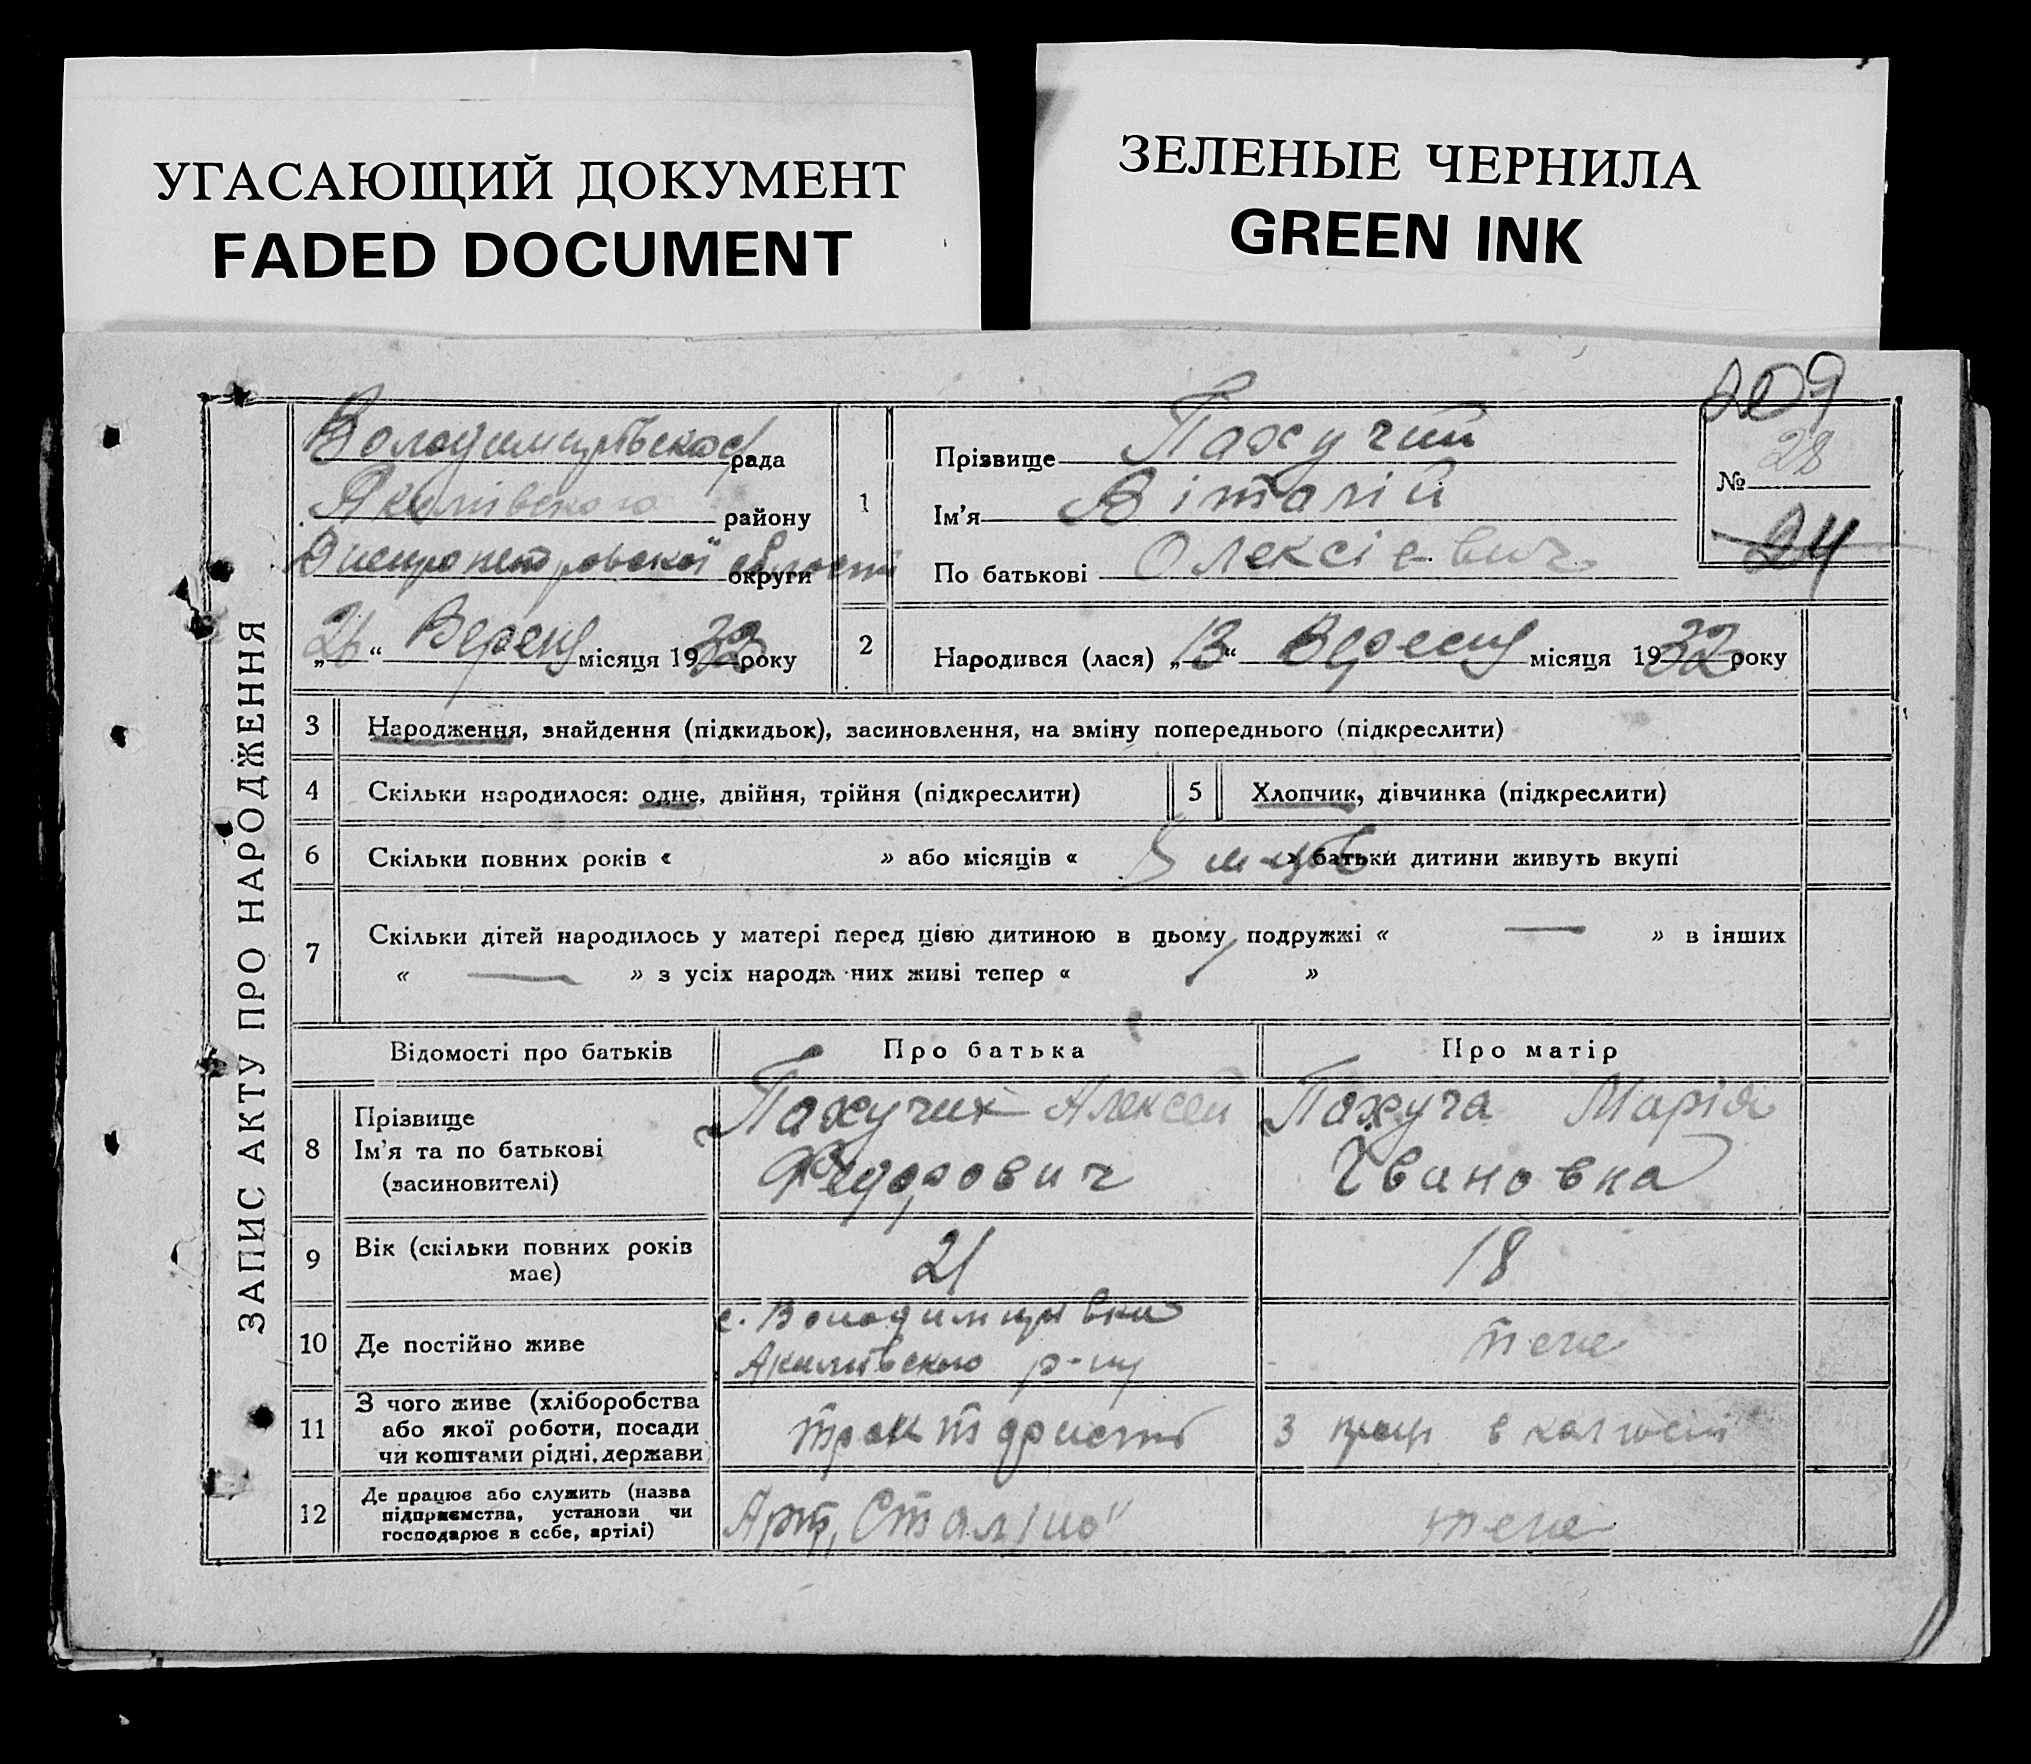 УГАСАЮЩИЙ ДОКУМЕНТ
FADED DOCUMENT
ЗЕЛЕНЫЕ ЧЕРНИЛА
GREEN INK
ЗАПИС АКТУ ПРО НАРОДЖЕННЯ
209
рада
Якимівського району
Днепропетровської області округи
„26“ місяця 1932 року
1
Прізвище Пахучий
Ім'я Віталій
По батькові Олексієвич
№ 28
24
2
Народився (лася) „13“ Вересня місяця 1932 року
3 Народження, знайдення (підкидьок), засиновлення, на зміну попереднього (підкреслити)
4 Скільки народилося: одне, двійня, трійня (підкреслити)
5 Хлопчик, дівчинка (підкреслити)
6 Скільки повних років « » або місяців « » батьки дитини живуть вкупі
7 Скільки дітей народилось у матері перед цією дитиною в цьому подружжі « — » в інших
« — » з усіх народж них живі тепер « »
Відомості про батьків
Про батька
Про матір
8
Прізвище
Ім'я та по батькові
(засиновителі)
Пахучий Алексей
Федорович
Пахуча Марія
Івановна
9
Вік (скільки повних років
має)
21
18
10 Де постійно живе
с. Володимирівки
Якимівського р-ну
теж
11
З чого живе (хліборобства
або якої роботи, посади
чи коштами рідні, держави
тракторист
з праці в колгоспі
12
Де працює або служить (назва
підприємства, установи чи
господарює в себе, артілі)
Арт. „Сталіно"
теж